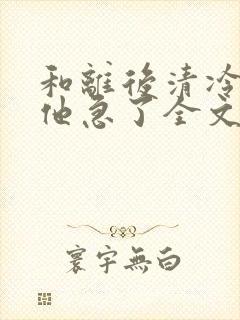 和離後清冷
他急了全文
寰宇無白